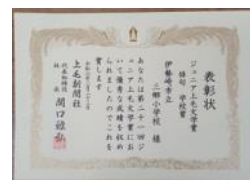 表彰状
ジュニア上毛文学賞
俳句 学校賞
伊勢崎市立
三郷小学校 様
あなたは第二十一回ジ
ュニア上毛文学賞にお
いて優秀な成績を収め
られましたのでこれを
賞します
上毛新聞社
代表取締役
社長 関口雅弘